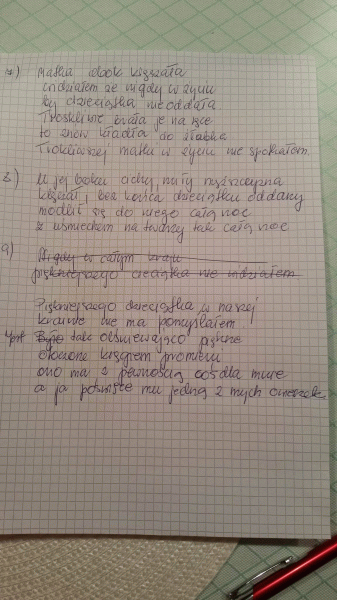 7) Matka obok klęczała
widziałem że nigdy w życiu
by dzieciątka nie oddała
Troskliwie brała je na ręce
to znów kładła do żłobka
Troskliwszej matki w życiu nie spotkałem.
8) U jej boku cichy, miły mężczyzna
klęczał, bez końca dzieciątku oddany
modlił się do niego całą noc
z uśmiechem na twarzy tak całą noc
9) Nigdy w całym kraju
piękniejszego dzieciątka nie widziałem
Piękniejszego dzieciątka w naszej
krainie nie ma pomyślałem
Było takie olśniewająco piękne
otoczone księżycem promieni
ono ma z pewnością coś dla mnie
a ja poświęcę mu jedną z mych owieczek